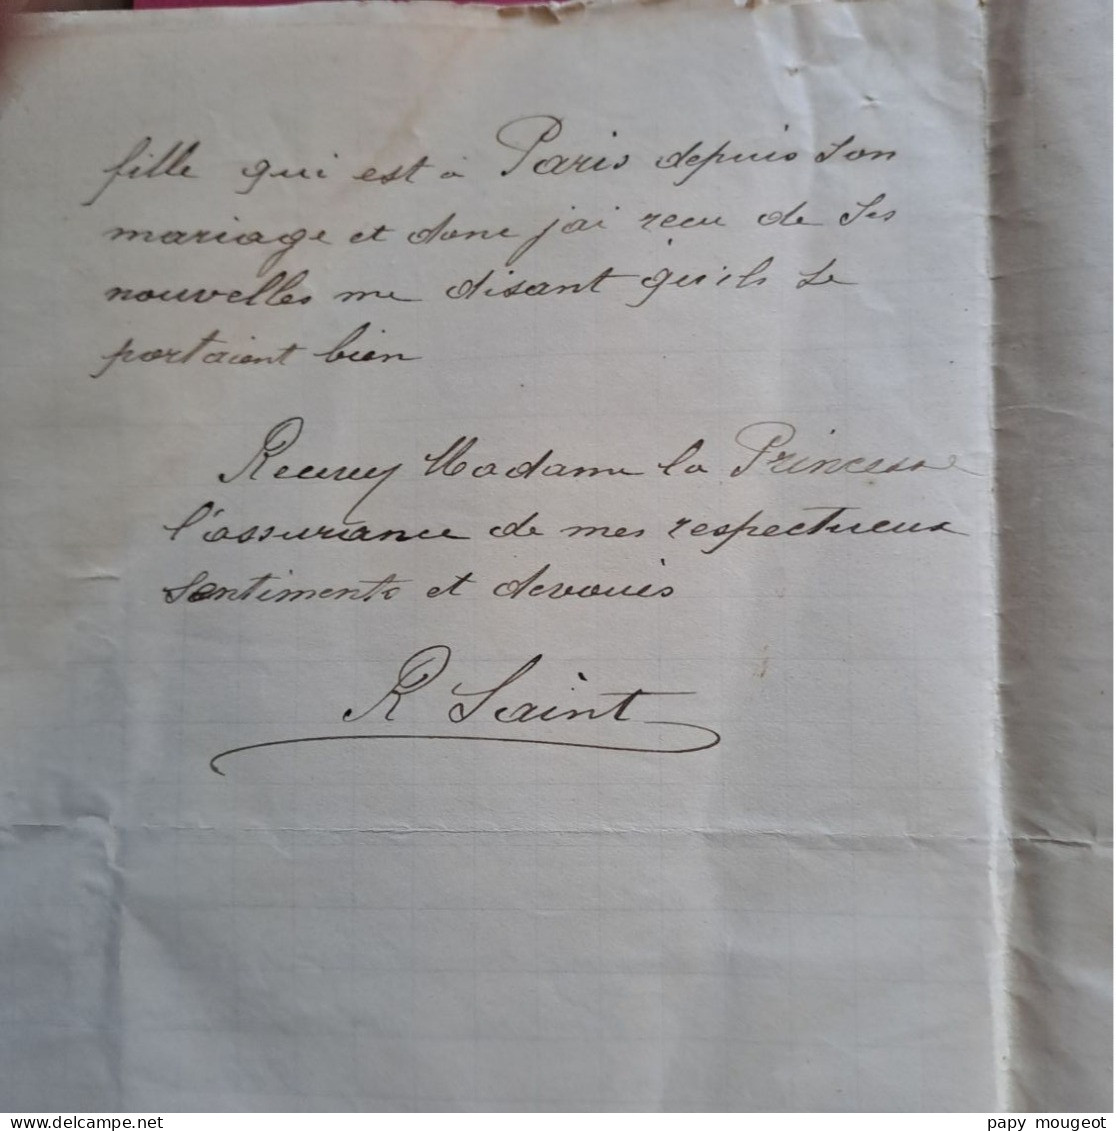 fille qui est à Paris depuis son
mariage et donc j'ai recu de ses
nouvelles me disant qu'ils se
portaient bien
Recevez Madame la Princesse
l'assurance de mes respectueux
sentiments et devoués
R Saint
www.delcampe.net
papy mougeot